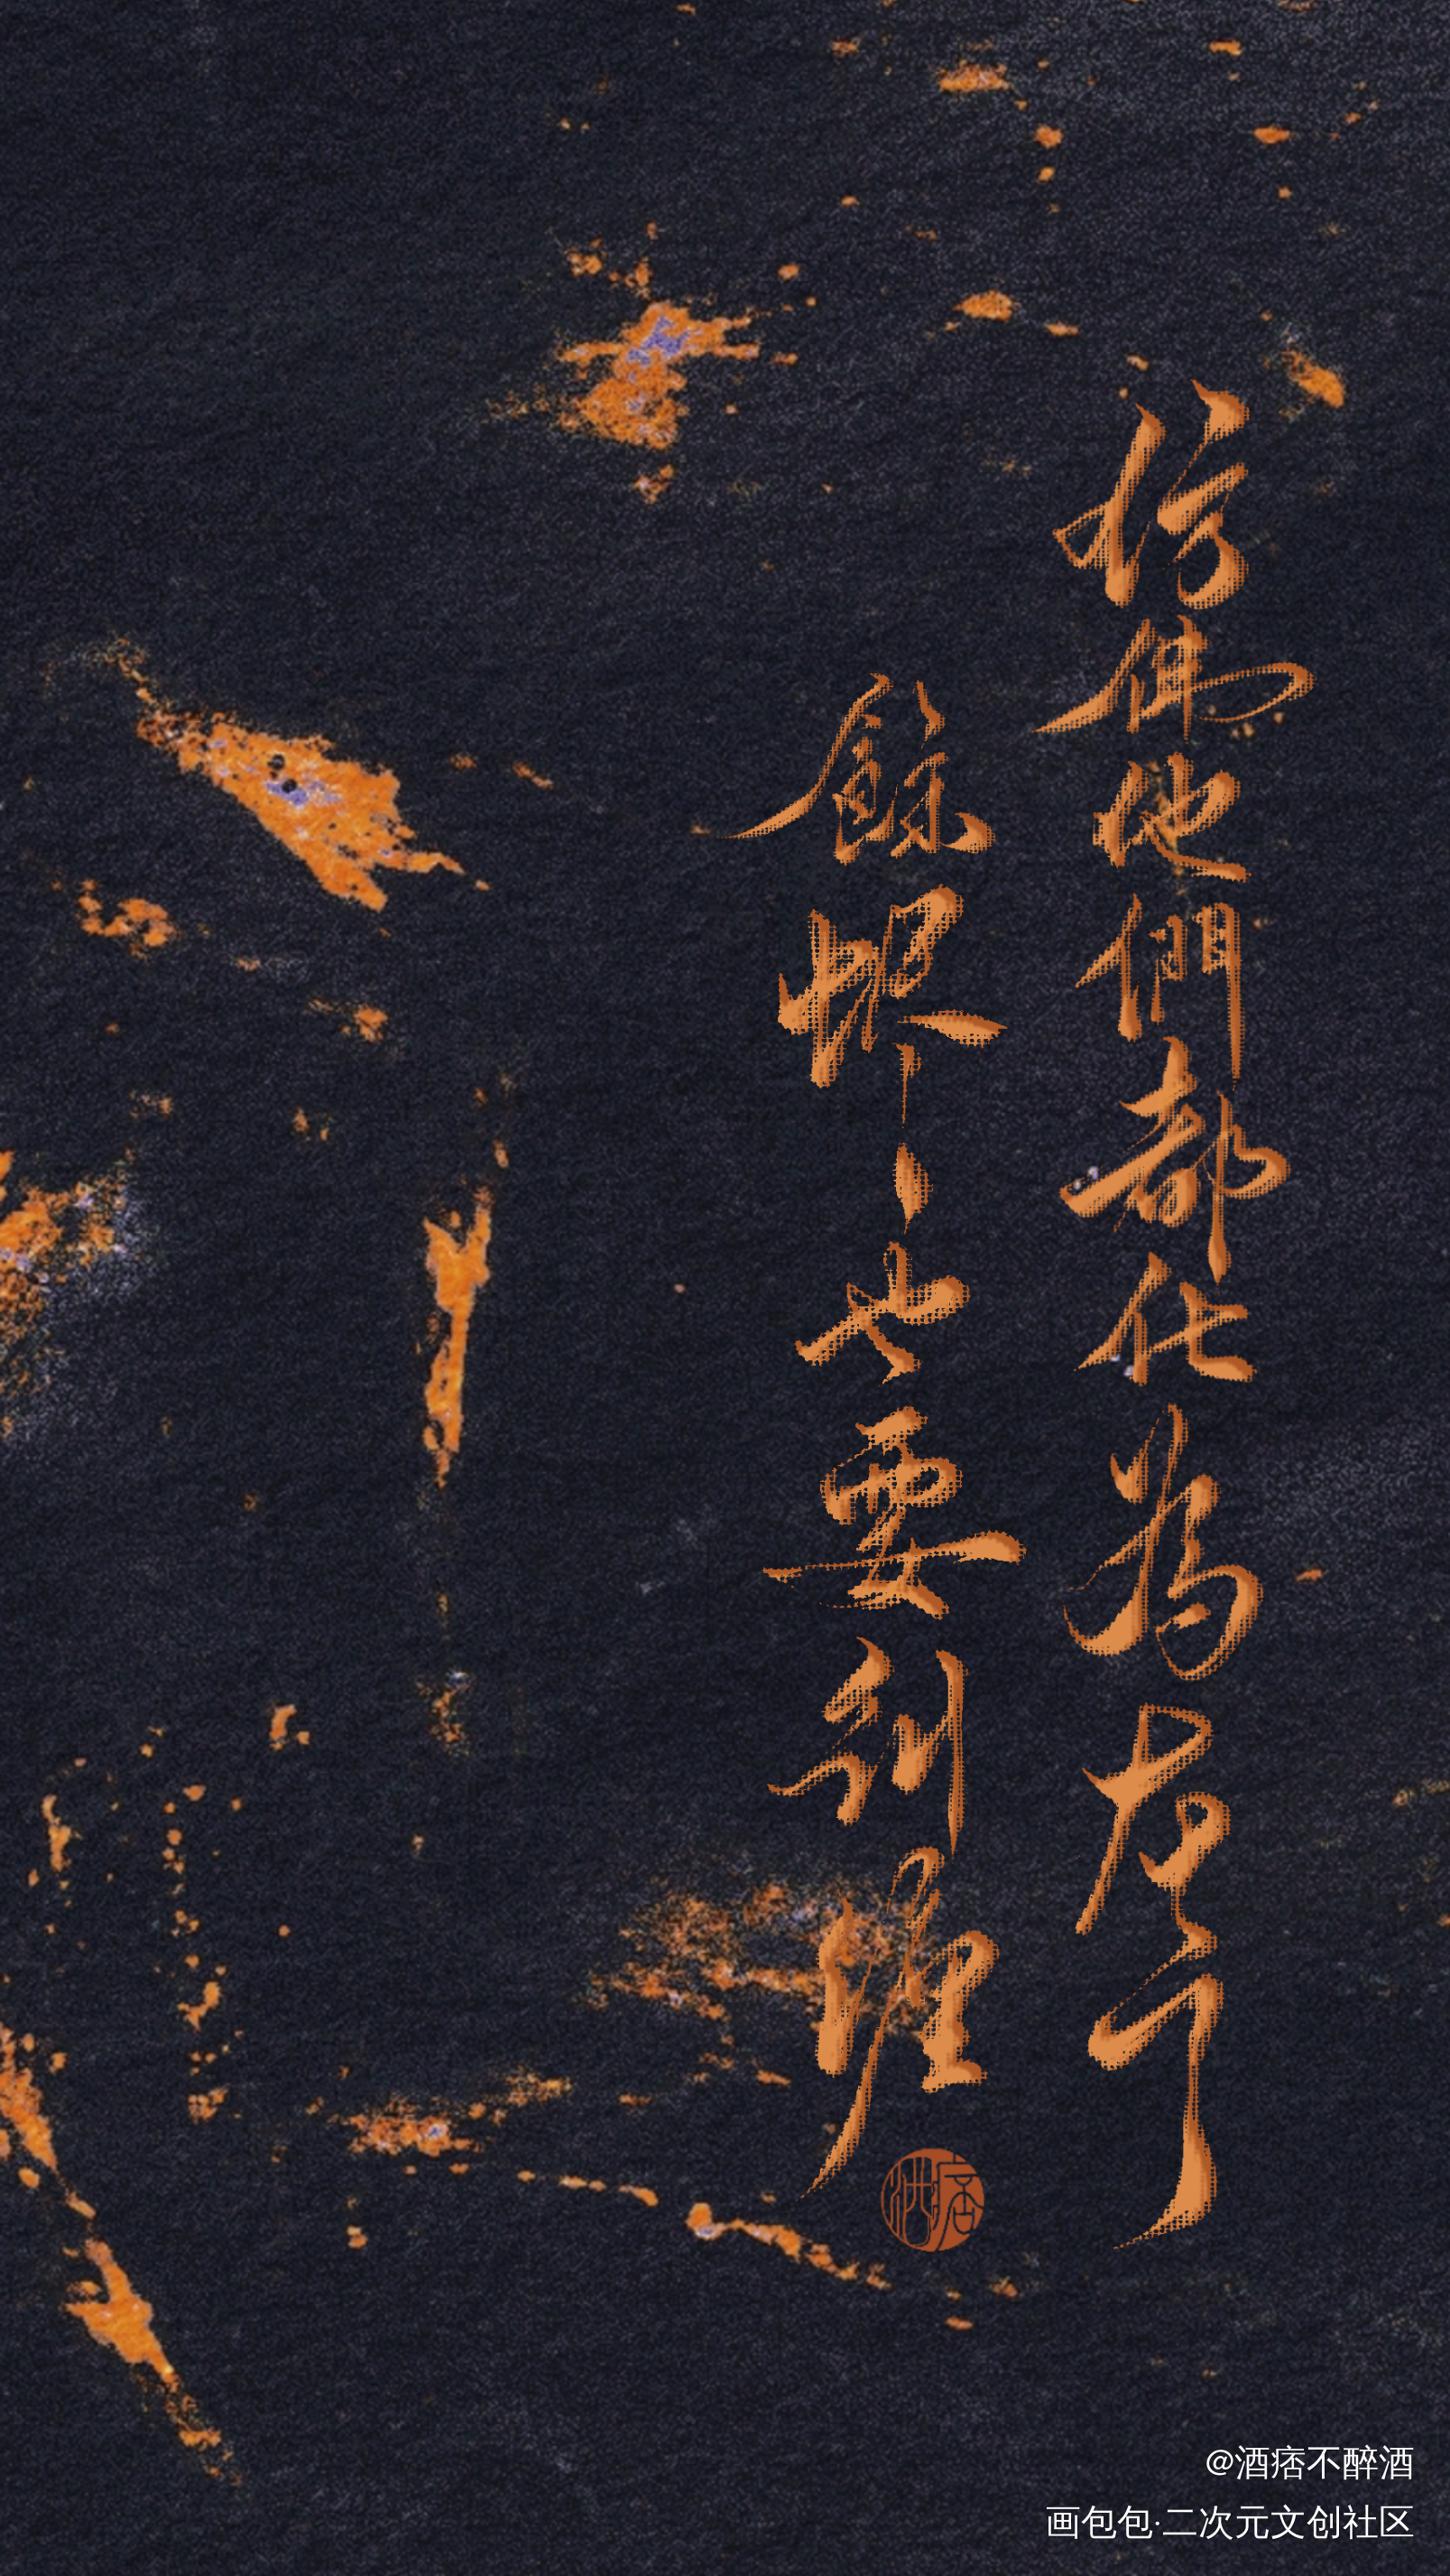 仿佛他們都化為灰了
餘燼、也要糾纏
酒痞
@酒痞不醉酒
画包包·二次元文创社区